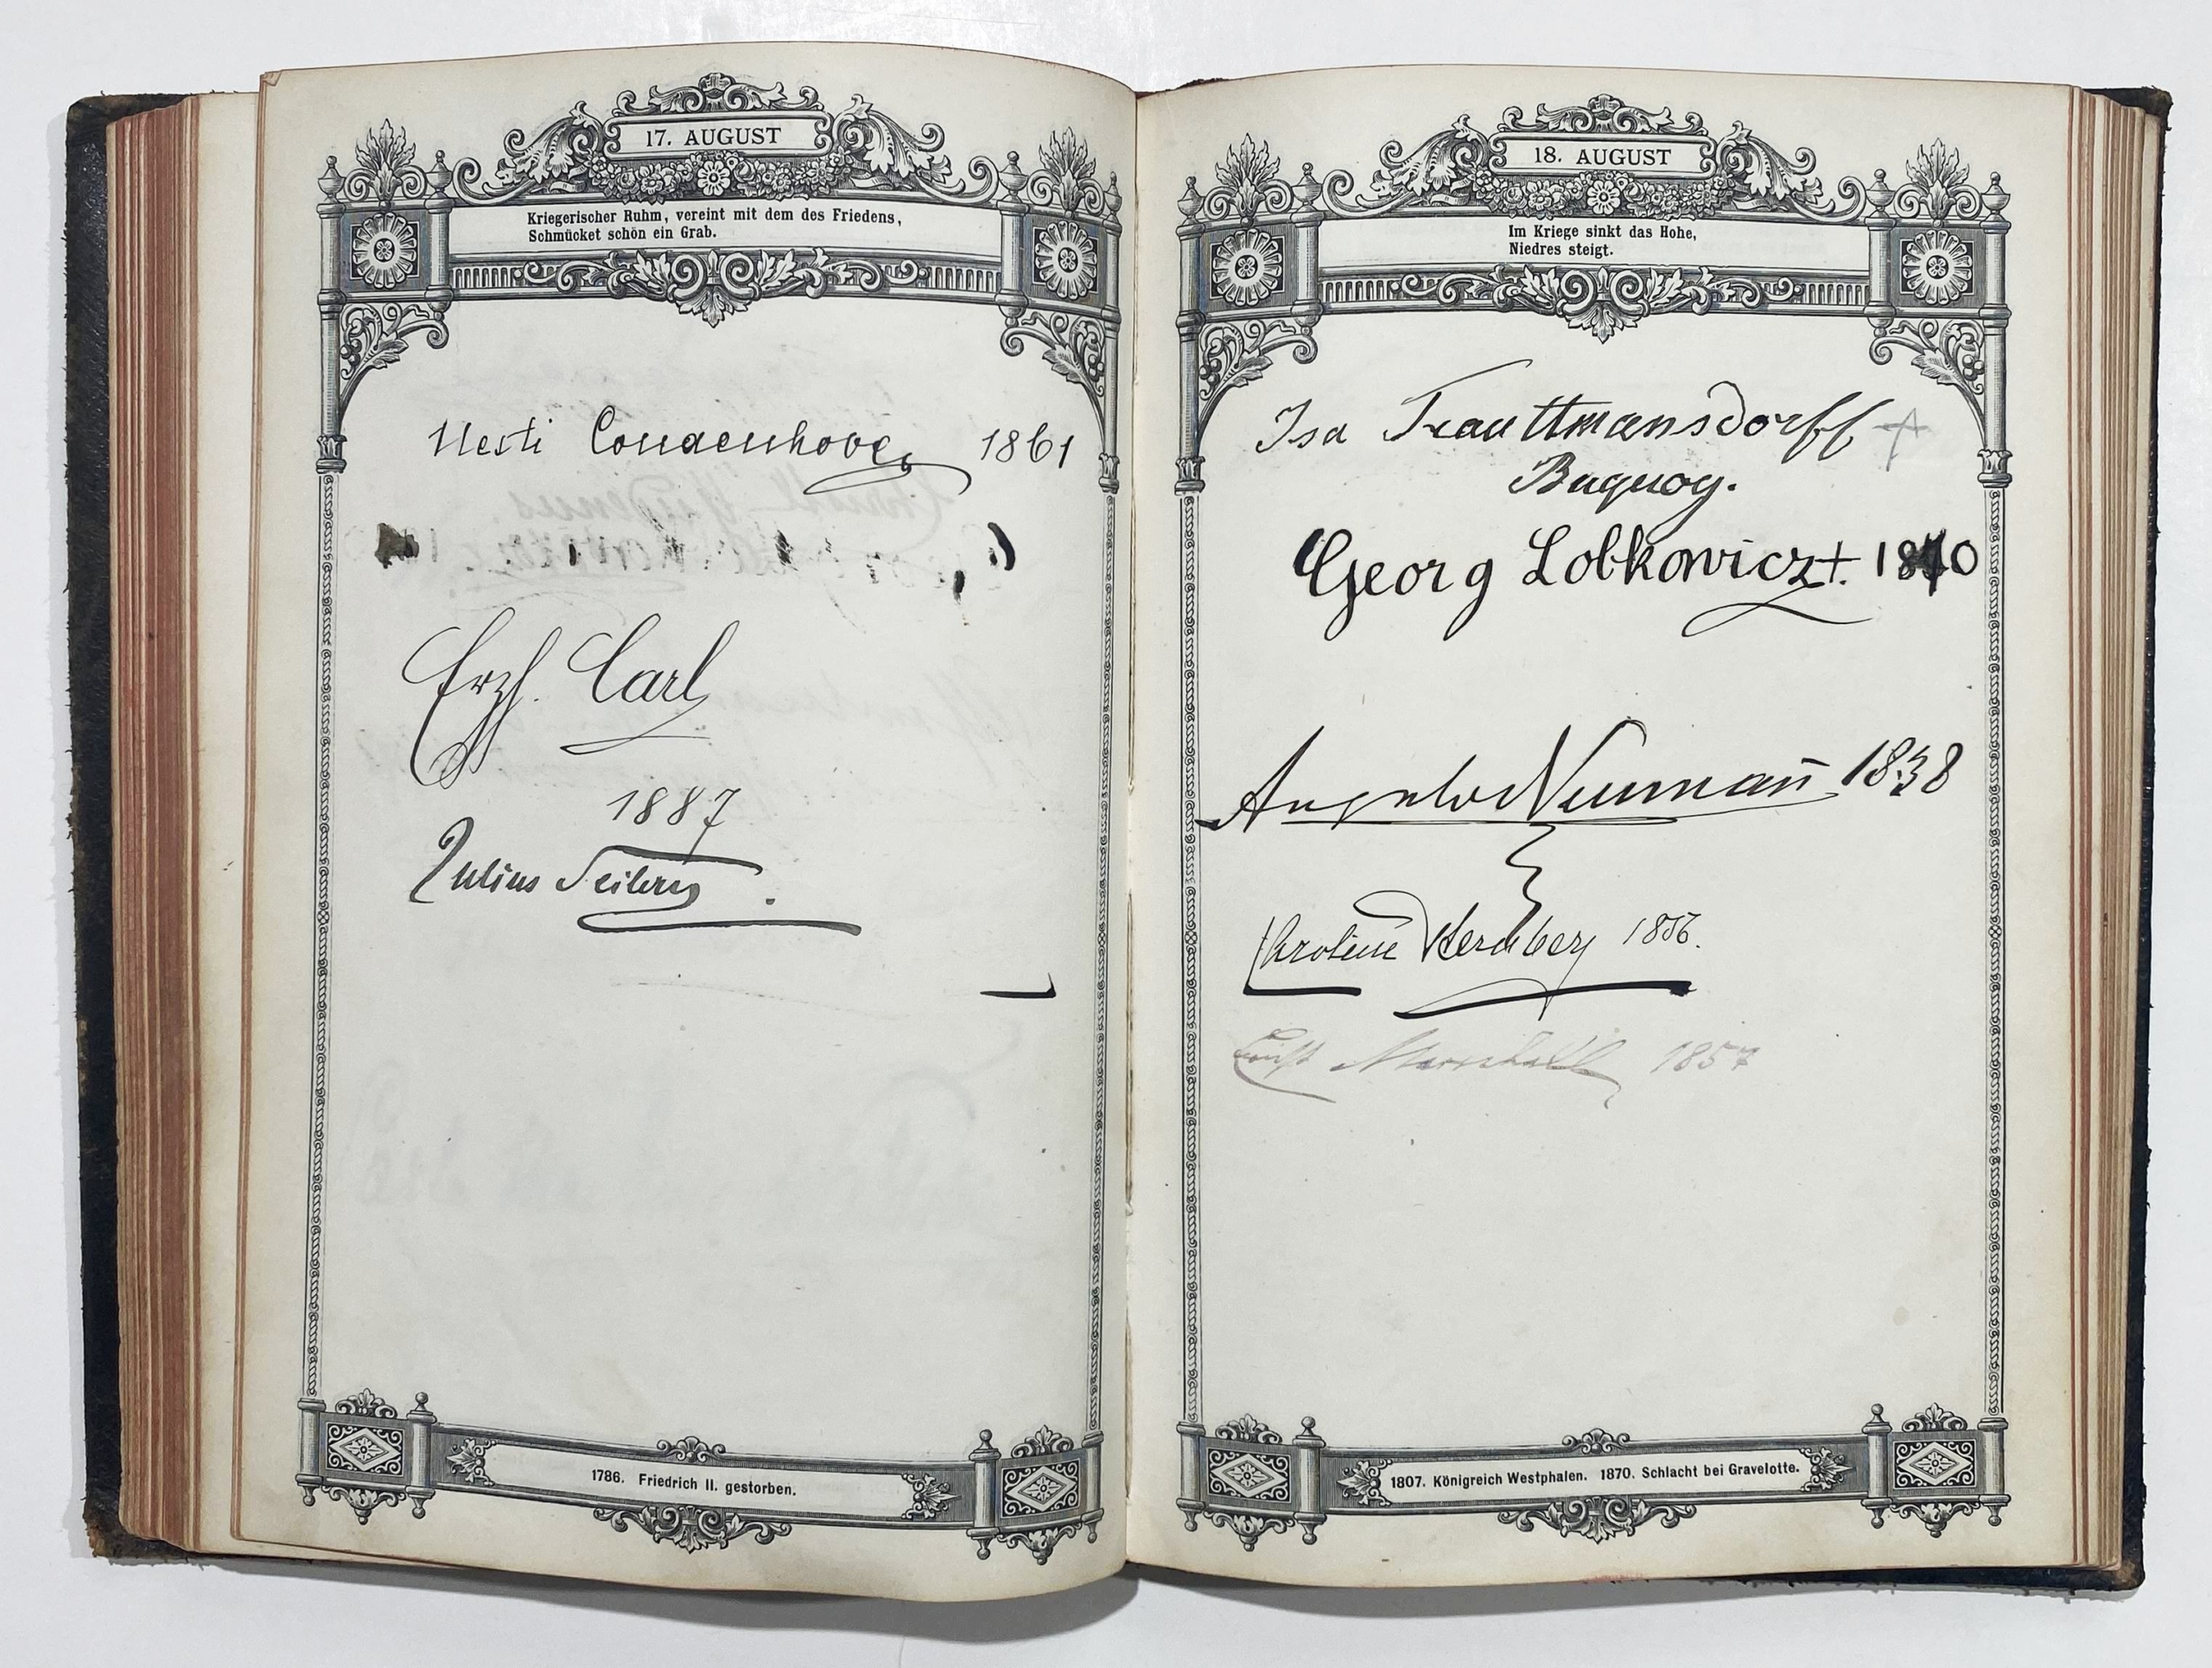 17. AUGUST
Kriegerischer Ruhm, vereint mit dem des Friedens,
Schmücket schön ein Grab.
Coudenhove 1861
Erzh. Carl
1887
Julius
1786. Friedrich II. gestorben.
18. AUGUST
Im Kriege sinkt das Hohe,
Niedres steigt.
Isa Trauttmansdorff +
Buquoy.
Georg Lobkowicz +. 1870
Angelo Neumann 1838
Karoline Sternberg 1856.
Ernst Marschall 1857
1807. Königreich Westphalen. 1870. Schlacht bei Gravelotte.